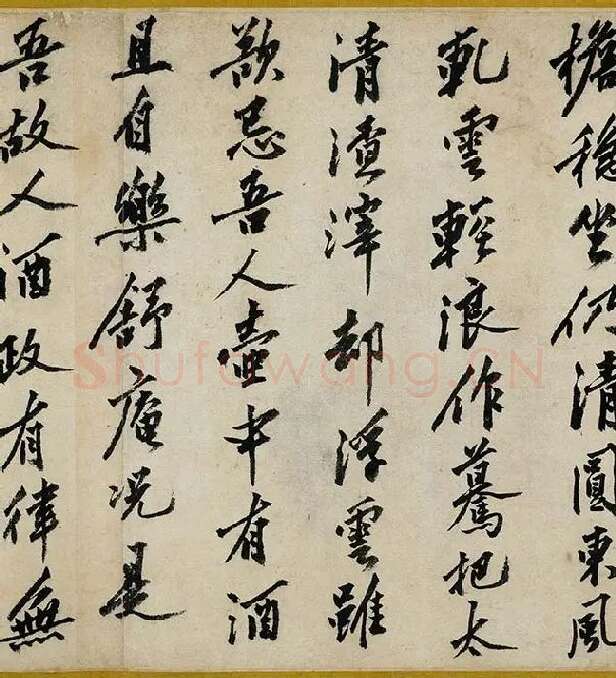 檐穩坐仍清圓東風
軋雲輕浪作驀把太
清渣滓却浮雲雖
欲忌吾人壺中有酒
且自樂舒庵况是
吾故人酒政有律無
Shufawang.CN